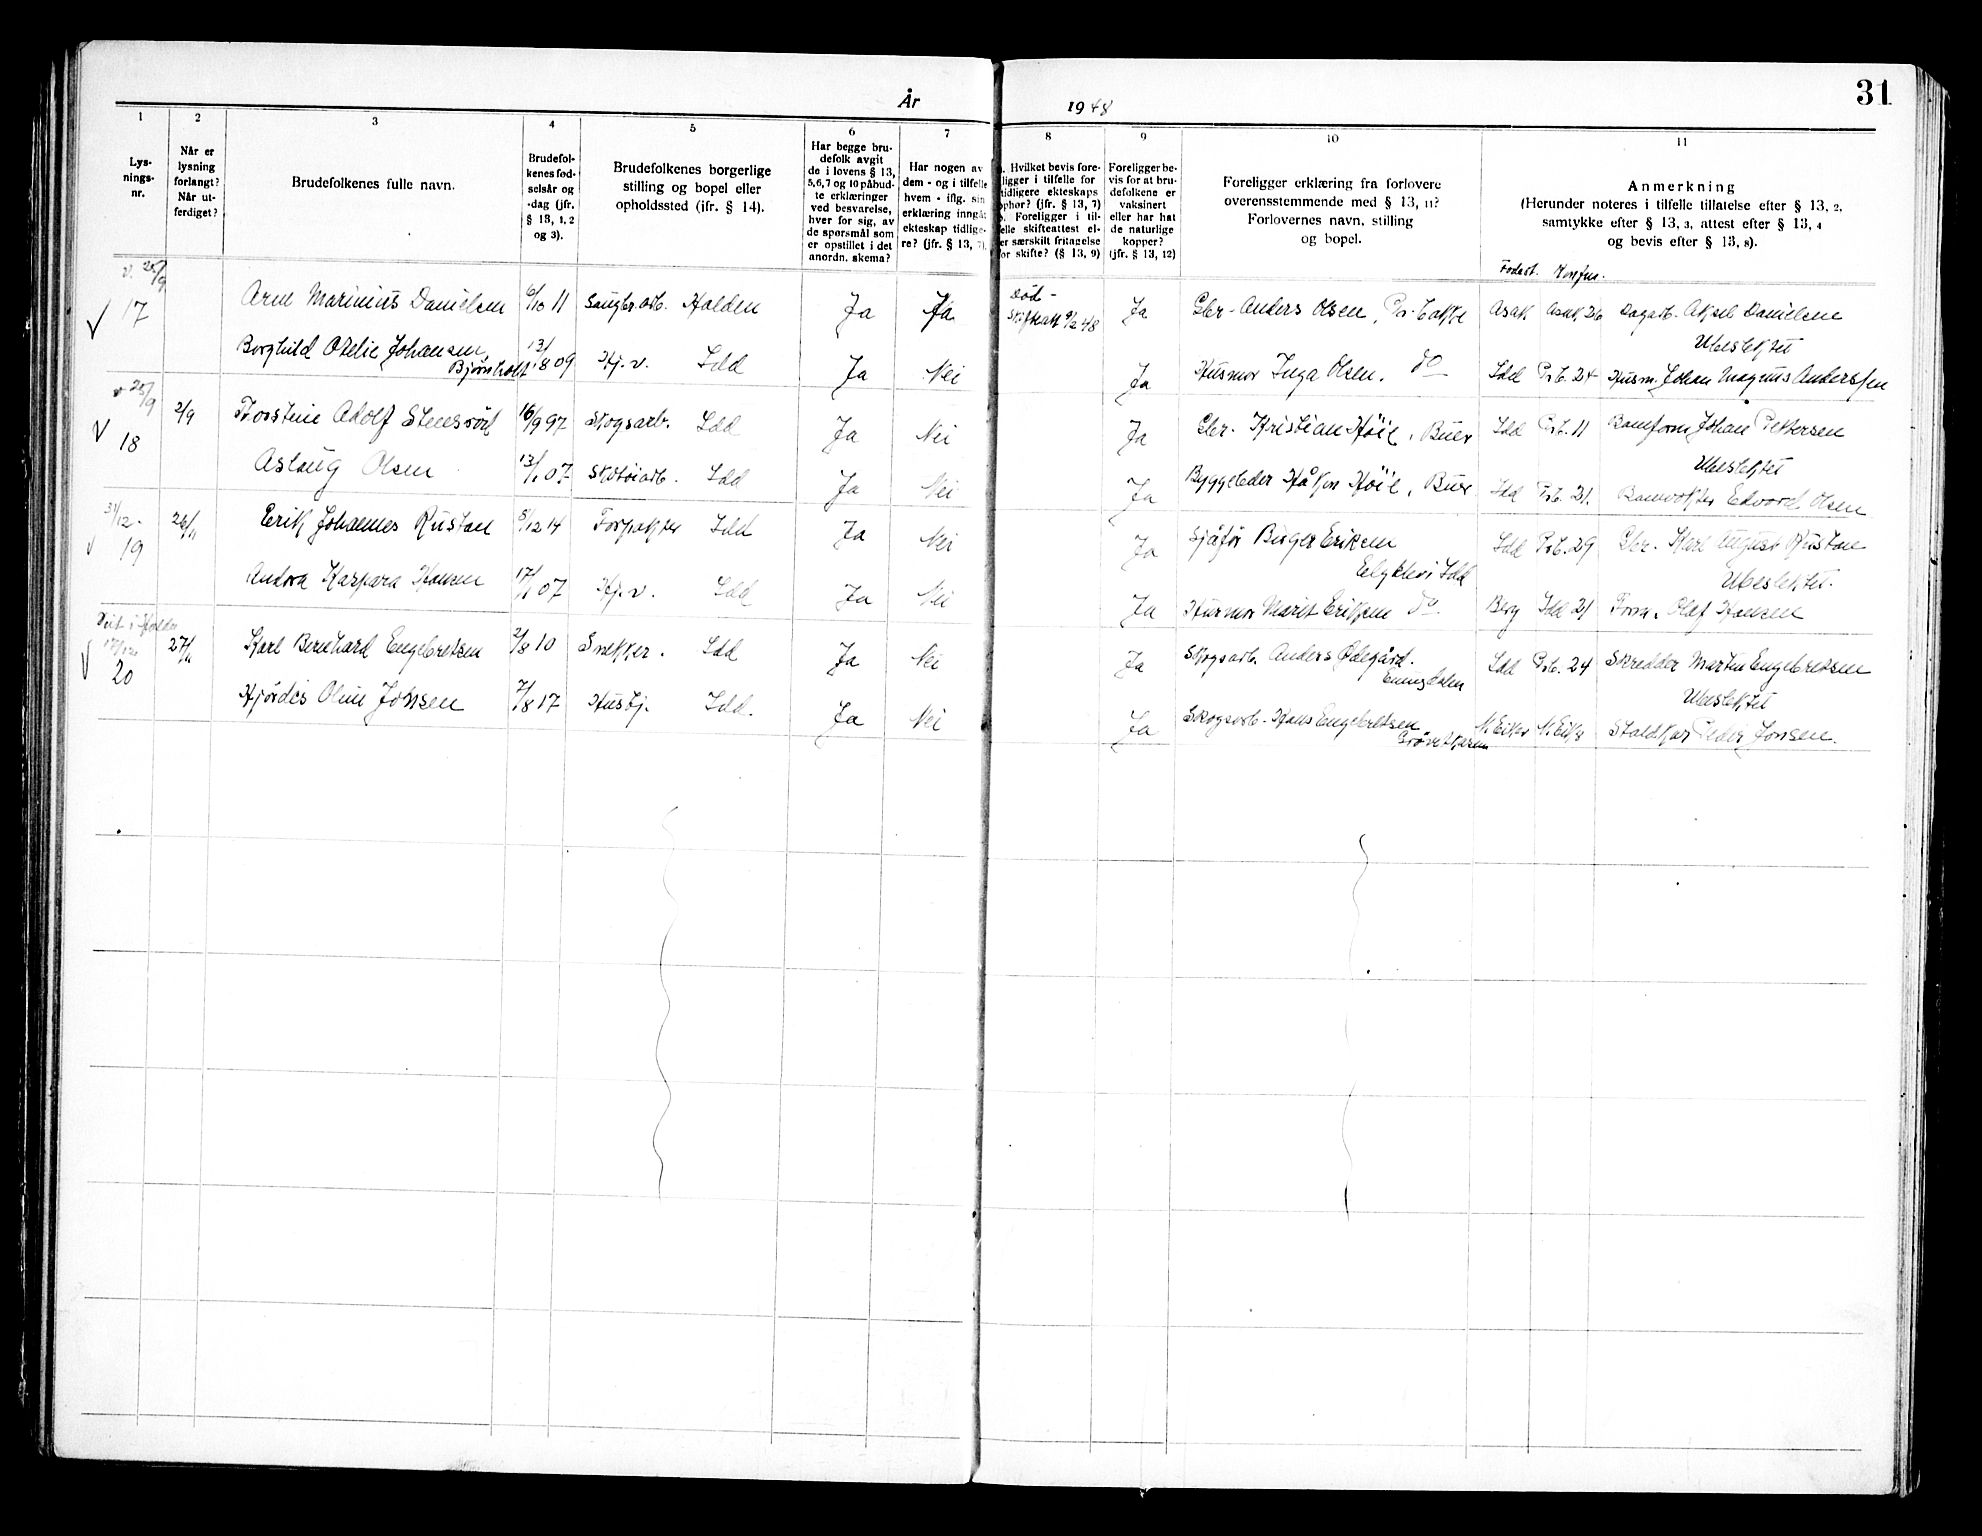 År 1948
31
1 2 3 4 5 6 7 8 9 10 11
Lys-
nings-
nr.
Når er
lysning
forlangt?
Når ut-
ferdiget?
Brudefolkenes fulle navn.
Brudefol-
kenes fød-
selsår og
-dag (jfr.
§ 13, 1, 2
og 3).
Brudefolkenes borgerlige
stilling og bopel eller
opholdssted (jfr. § 14).
Har begge bru-
defolk avgit
de i lovens § 13,
5,6,7 og 10 påbud-
te erklæringer
ved besvarelse,
hver for sig, av
de spørsmål som
er opstillet i det
anordn. skema?
Har nogen av
dem - og i tilfelle
hvem - iflg. sin
erklæring inngåt
ekteskap tidlige-
re? (jfr. § 13, 7).
Hvilket bevis fore-
ligger i tilfelle for
tidligere ekteskaps
ophør? (jfr. § 13, 7)
Foreligger i til-
elle skifteattest el-
er særskilt fritagelse
or skifte? (§ 13, 9)
Foreligger be-
vis for at bru-
defolkene er
vaksinert
eller har hat
de naturlige
kopper?
(jfr. § 13, 12)
Foreligger erklæring fra forlovere
overensstemmende med § 13, 11?
Forlovernes navn, stilling
og bopel.
Anmerkning
(Herunder noteres i tilfelle tillatelse efter § 13, 2,
samtykke efter § 13, 3, attest efter § 13, 4
og bevis efter § 13, 8).
Fødest. Konfm.
v. 25/9
17 Arne Marinius Danielsen 6/10 11 Sagbr.arb. Halden Ja Ja Død - Skifteatt 9/2 48 Ja Gbr. Anders Olsen, Asak Asak 26 Dagarb. Aksel Danielsen
Ubeslektet
Borghild Otelie Johansen
Bjørnholt 13/1 8 09 Hj. v. Idd Ja Nei Ja Husmor Inga Olsen. do Idd Prb. 24 Husm. Johan Magnus Anderssen
v 25/9
18 2/9 Torstein Adolf Stensrød 16/9 97 Skogsarb. Idd Ja Nei Ja Gbr. Kristian Høie, Buer Idd Prb. 11 Banform. Johan Pettersen
Ubeslektet
Aslaug Olsen 13/1 07 Skotøiarb. Idd Ja Nei Ja Byggeleder Håkon Høie, Buer Idd Prb. 21. Banevokter Edvard Olsen
31/12.
19 26/11 Erik Johannes Rustan 5/12 14 Forpakter Idd Ja Nei Ja Sjåfør Birger Eriksen
Elgkleiv Idd Idd Prb. 29 Gbr. Karl August Rustan
Ubeslektet.
Andora Kaspara Hansen 17/1 07 Hj. v. Idd Ja Nei Ja Husmor Marit Eriksen do. Berg Idd 21 Olaf Hansen
Viet i Halden
20 27/11 Karl Bernhard Engebretsen 2/8 10 Snekker. Idd Ja Nei Ja Skogsarb. Anders Ødegård.
Enningdalen Idd Prb. 24 Skredder Martin Engebretsen
Ubeslektet
Hjørdis Oline Jonsen 7/8 17 Hustj. Idd. Ja Nei Ja Skogsarb. Hans Engebretsen
N. Eiker N. Eiker Staldkar Peder Jonsen.